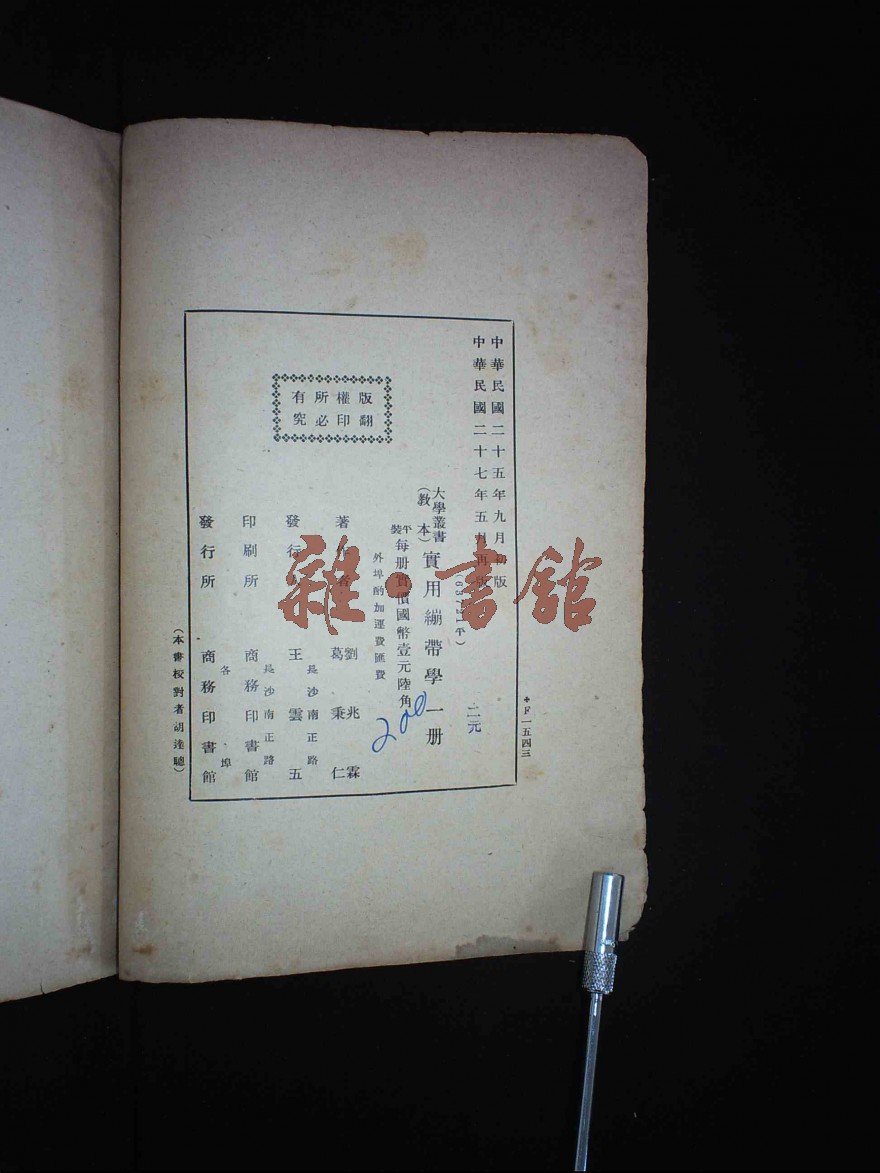 ✥F一五四三
中華民國二十五年九月初版
中華民國二十七年五月再版
(63721平)
二元
大學叢書
(教本)
實用繃帶學一册
平裝
每册實價國幣壹元陸角
200
外埠酌加運費匯費
版權所有
翻印必究
著作者
劉兆霖
葛秉仁
發行人
長沙南正路
王雲五
印刷所
長沙南正路
商務印書館
發行所
各埠
商務印書館
(本書校對者胡達聰)
雜·書館